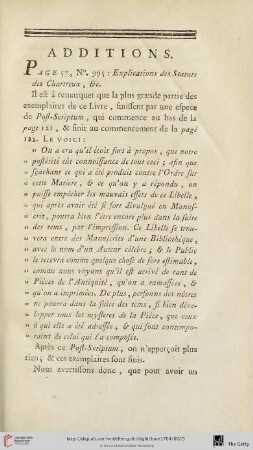 ADDITIONS.
PAGE 57, N°. 995: Explications des Statuts
des Chartreux, &c.
Il est à remarquer que la plus grande partie des
exemplaires de ce Livre, finissent par une espece
de Post-Scriptum, qui commence au bas de la
page 121, & finit au commencement de la page
122. LE VOICI:
» On a cru qu'il étoit fort à propos, que notre
» postérité eût connoissance de tout ceci; afin que
» sçachant ce qui a été produit contre l'Ordre sur
» cette Matiere, & ce qu'on y a répondu, on
» puisse empêcher les mauvais effets de ce Libelle,
» qui après avoir été si fort divulgué en Manus-
» crit, pourra bien l'être encore plus dans la suite
» des tems, par l'impression. Ce Libelle se trou-
» vera entre des Manuscrits d'une Bibliothèque,
» avec le nom d'un Auteur célebre; & le Public
» le recevra comme quelque chose de fort estimable,
» comme nous voyons qu'il est arrivé de tant de
» Pièces de l'Antiquité, qu'on a ramassées, &
» qu'on a imprimées. De plus, personne des nôtres
» ne pourra dans la suite des tems, si bien déve-
» lopper tous les mystères de la Pièce, que ceux
» à qui elle a été adressée, & qui sont contempo-
» rains de celui qui l'a composée.
Après ce Post-Scriptum, on n'apperçoit plus
rien; & ces exemplaires sont finis.
Nous avertissons donc, que pour avoir un
UNIVERSITÄTS-
BIBLIOTHEK
HEIDELBERG
The Getty